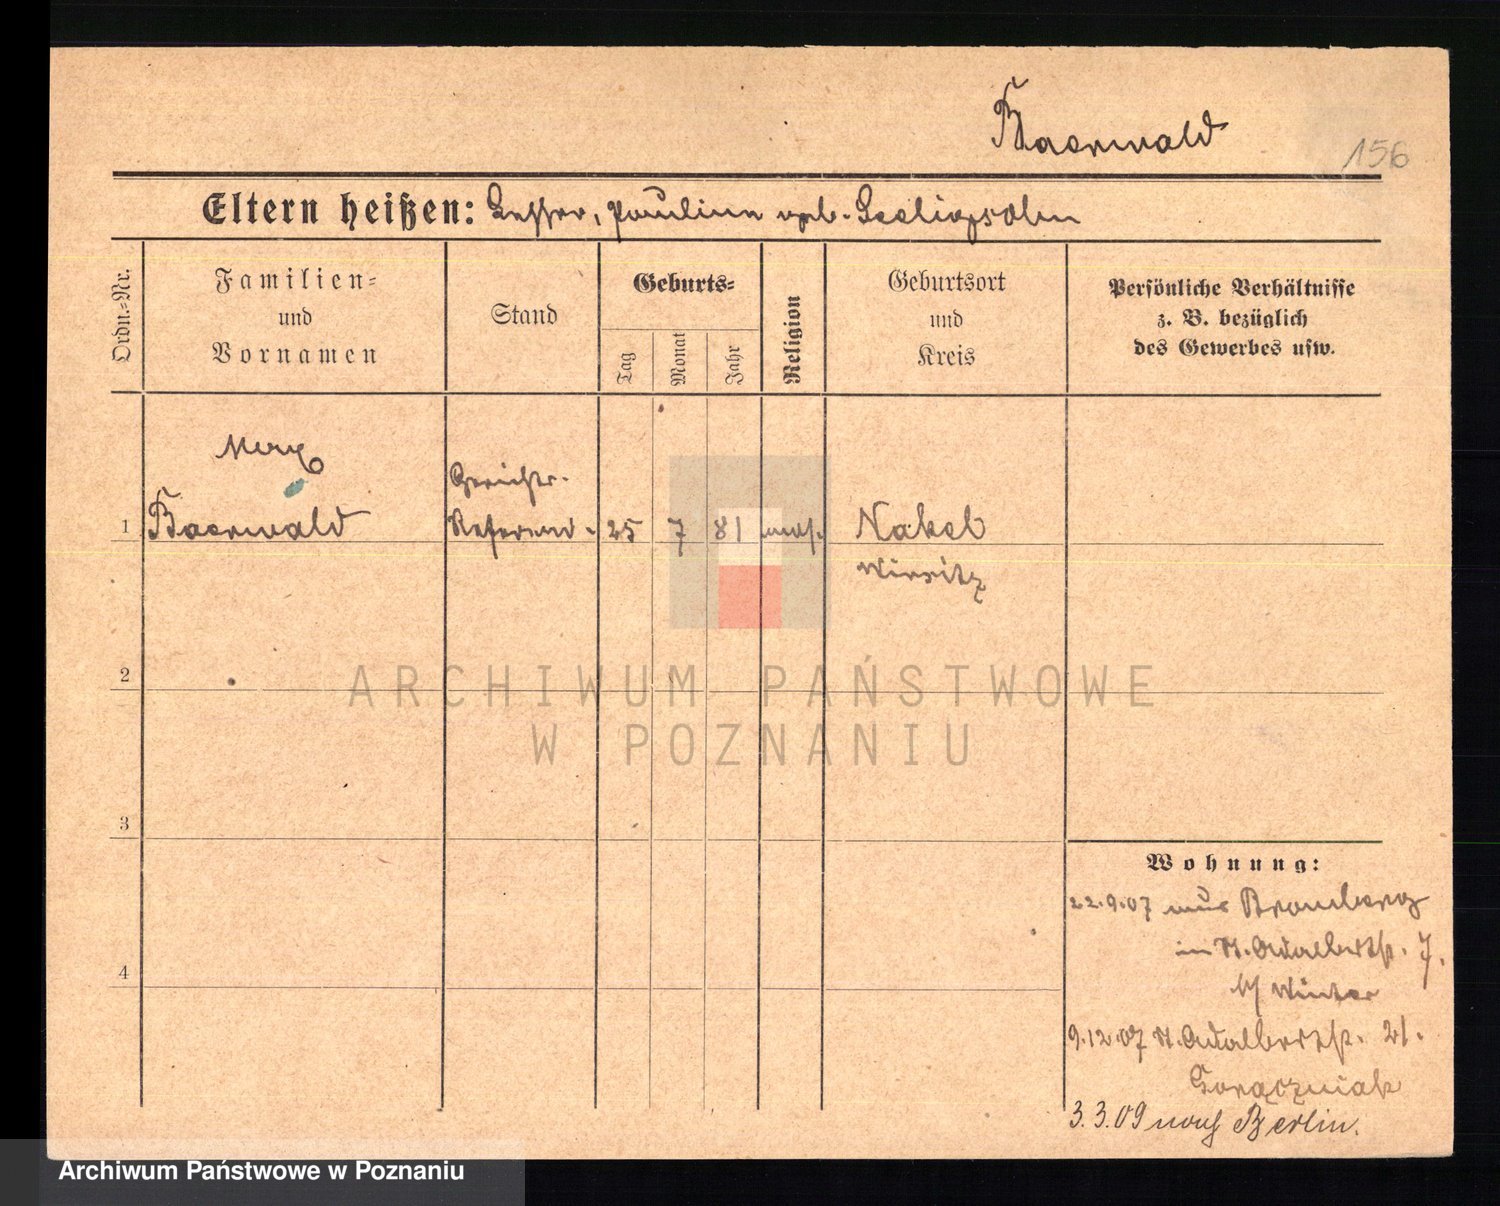 Baerwald
156
Eltern heißen: Lesser, Pauline geb. Seeligsohn
Ordn.=Nr.
Familien=
und
Vornamen
Stand
Geburts=
Tag
Monat
Jahr
Religion
Geburtsort
und
Kreis
Persönliche Verhältnisse
z. B. bezüglich
des Gewerbes usw.
Max
1 Baerwald
Gerichts-
Referend.
25 7 81 mos.
Nakel
Wirsitz
2
3
4
ARCHIWUM PAŃSTWOWE
W POZNANIU
Wohnung:
22.9.07 aus Bromberg
in St. Adalbertstr. 7.
b/ Winter
9.12.07 St. Adalbertstr. 21.
Gorączniak
3.3.09 nach Berlin.
Archiwum Państwowe w Poznaniu